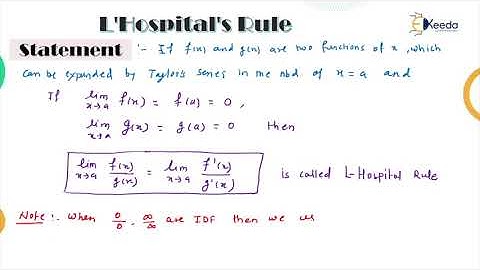 L'Hospital's Rule
Ekeeda
Statement :- If f(x) and g(x) are two functions of x, which
can be expanded by Taylor's series in the nbd of x = a and
If lim x→a f(x) = f(a) = 0,
lim x→a g(x) = g(a) = 0 then
lim x→a f(x)/g(x) = lim x→a f'(x)/g'(x) is called L-Hospital Rule
Note :. When 0/0, ∞/∞ are IDF then we us